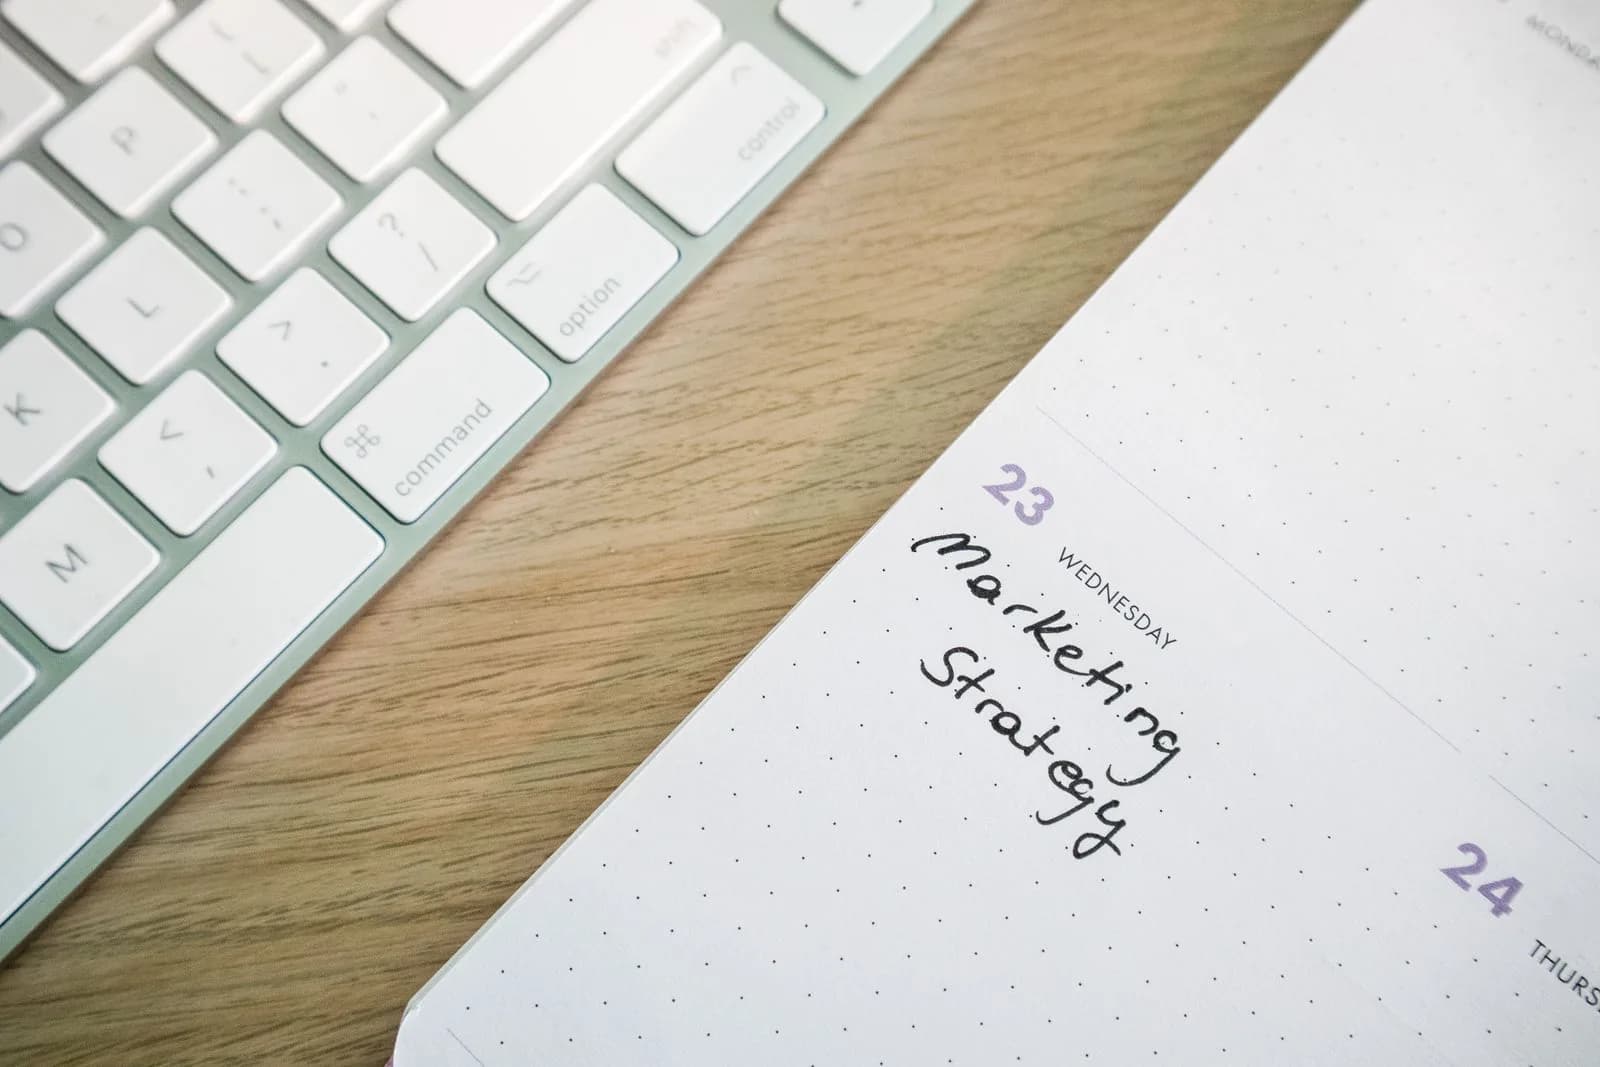 shift
control
P
option
O
L
K
M
? /
> .
< ,
⌘
command
MONDA
23
WEDNESDAY
Marketing
Strategy
24
THURS